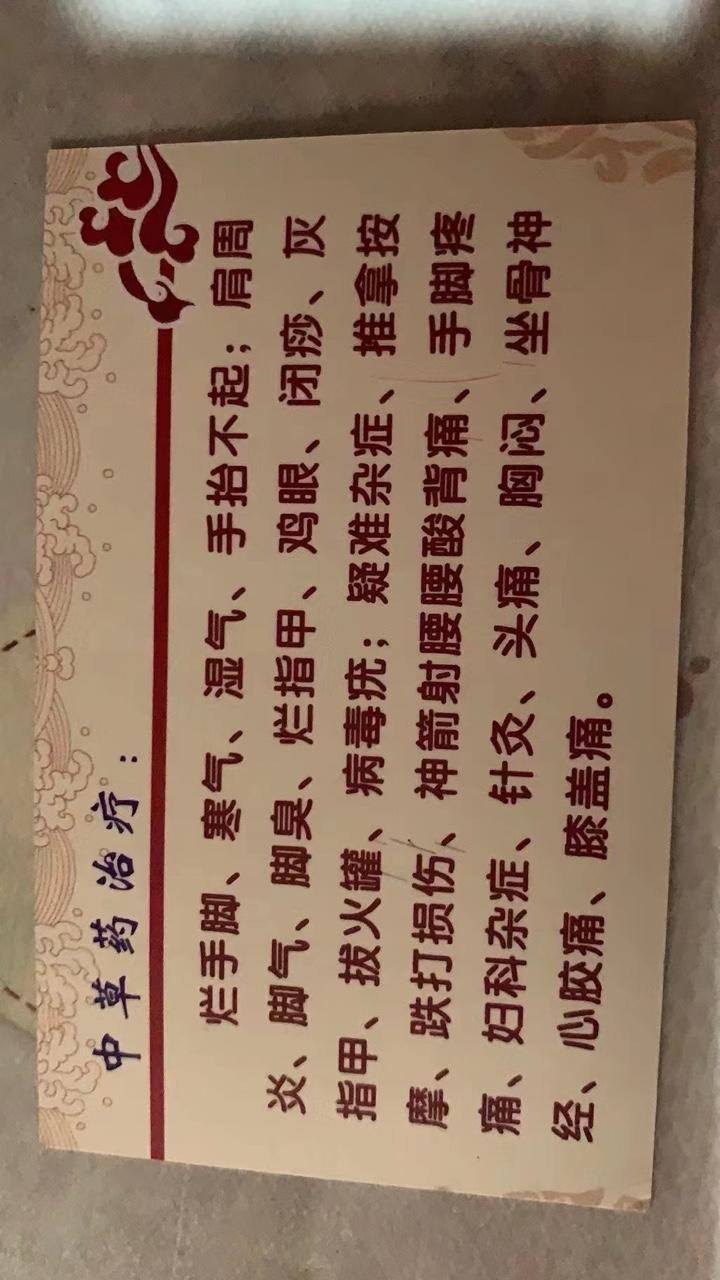 中草药治疗：
烂手脚、寒气、湿气、手抬不起；肩周
炎、脚气、脚臭、烂指甲、鸡眼、闭痧、灰
指甲、拔火罐、病毒疣；疑难杂症、推拿按
摩、跌打损伤、神箭射腰腰酸背痛、手脚疼
痛、妇科杂症、针灸、头痛、胸闷、坐骨神
经、心胶痛、膝盖痛。